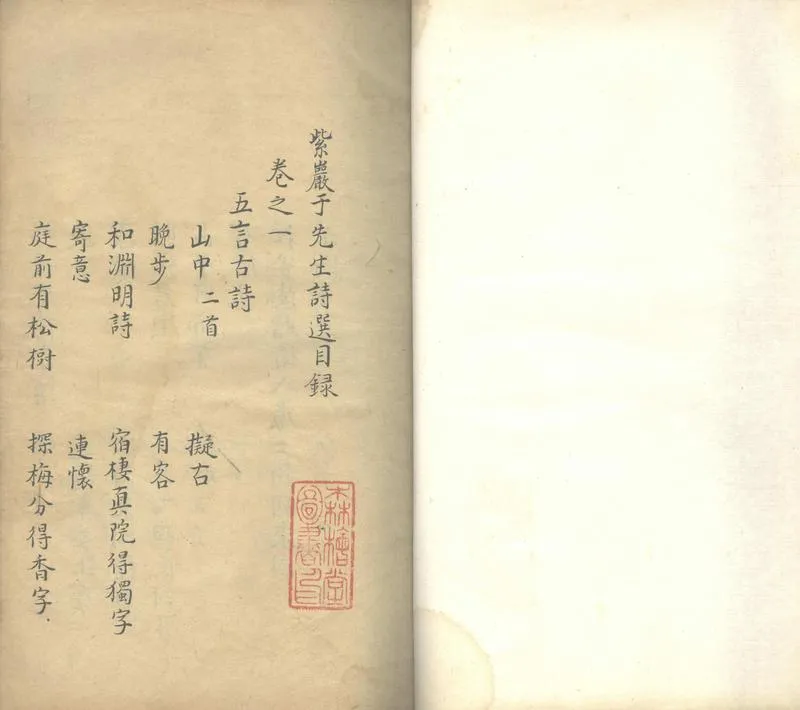 紫巖于先生詩選目録
卷之一
五言古詩
山中 二首 擬古
晚步 有客
和淵明詩 宿棲真院得獨字
寄意 連懷
庭前有松樹 探梅分得香字
森橧堂
圖書印